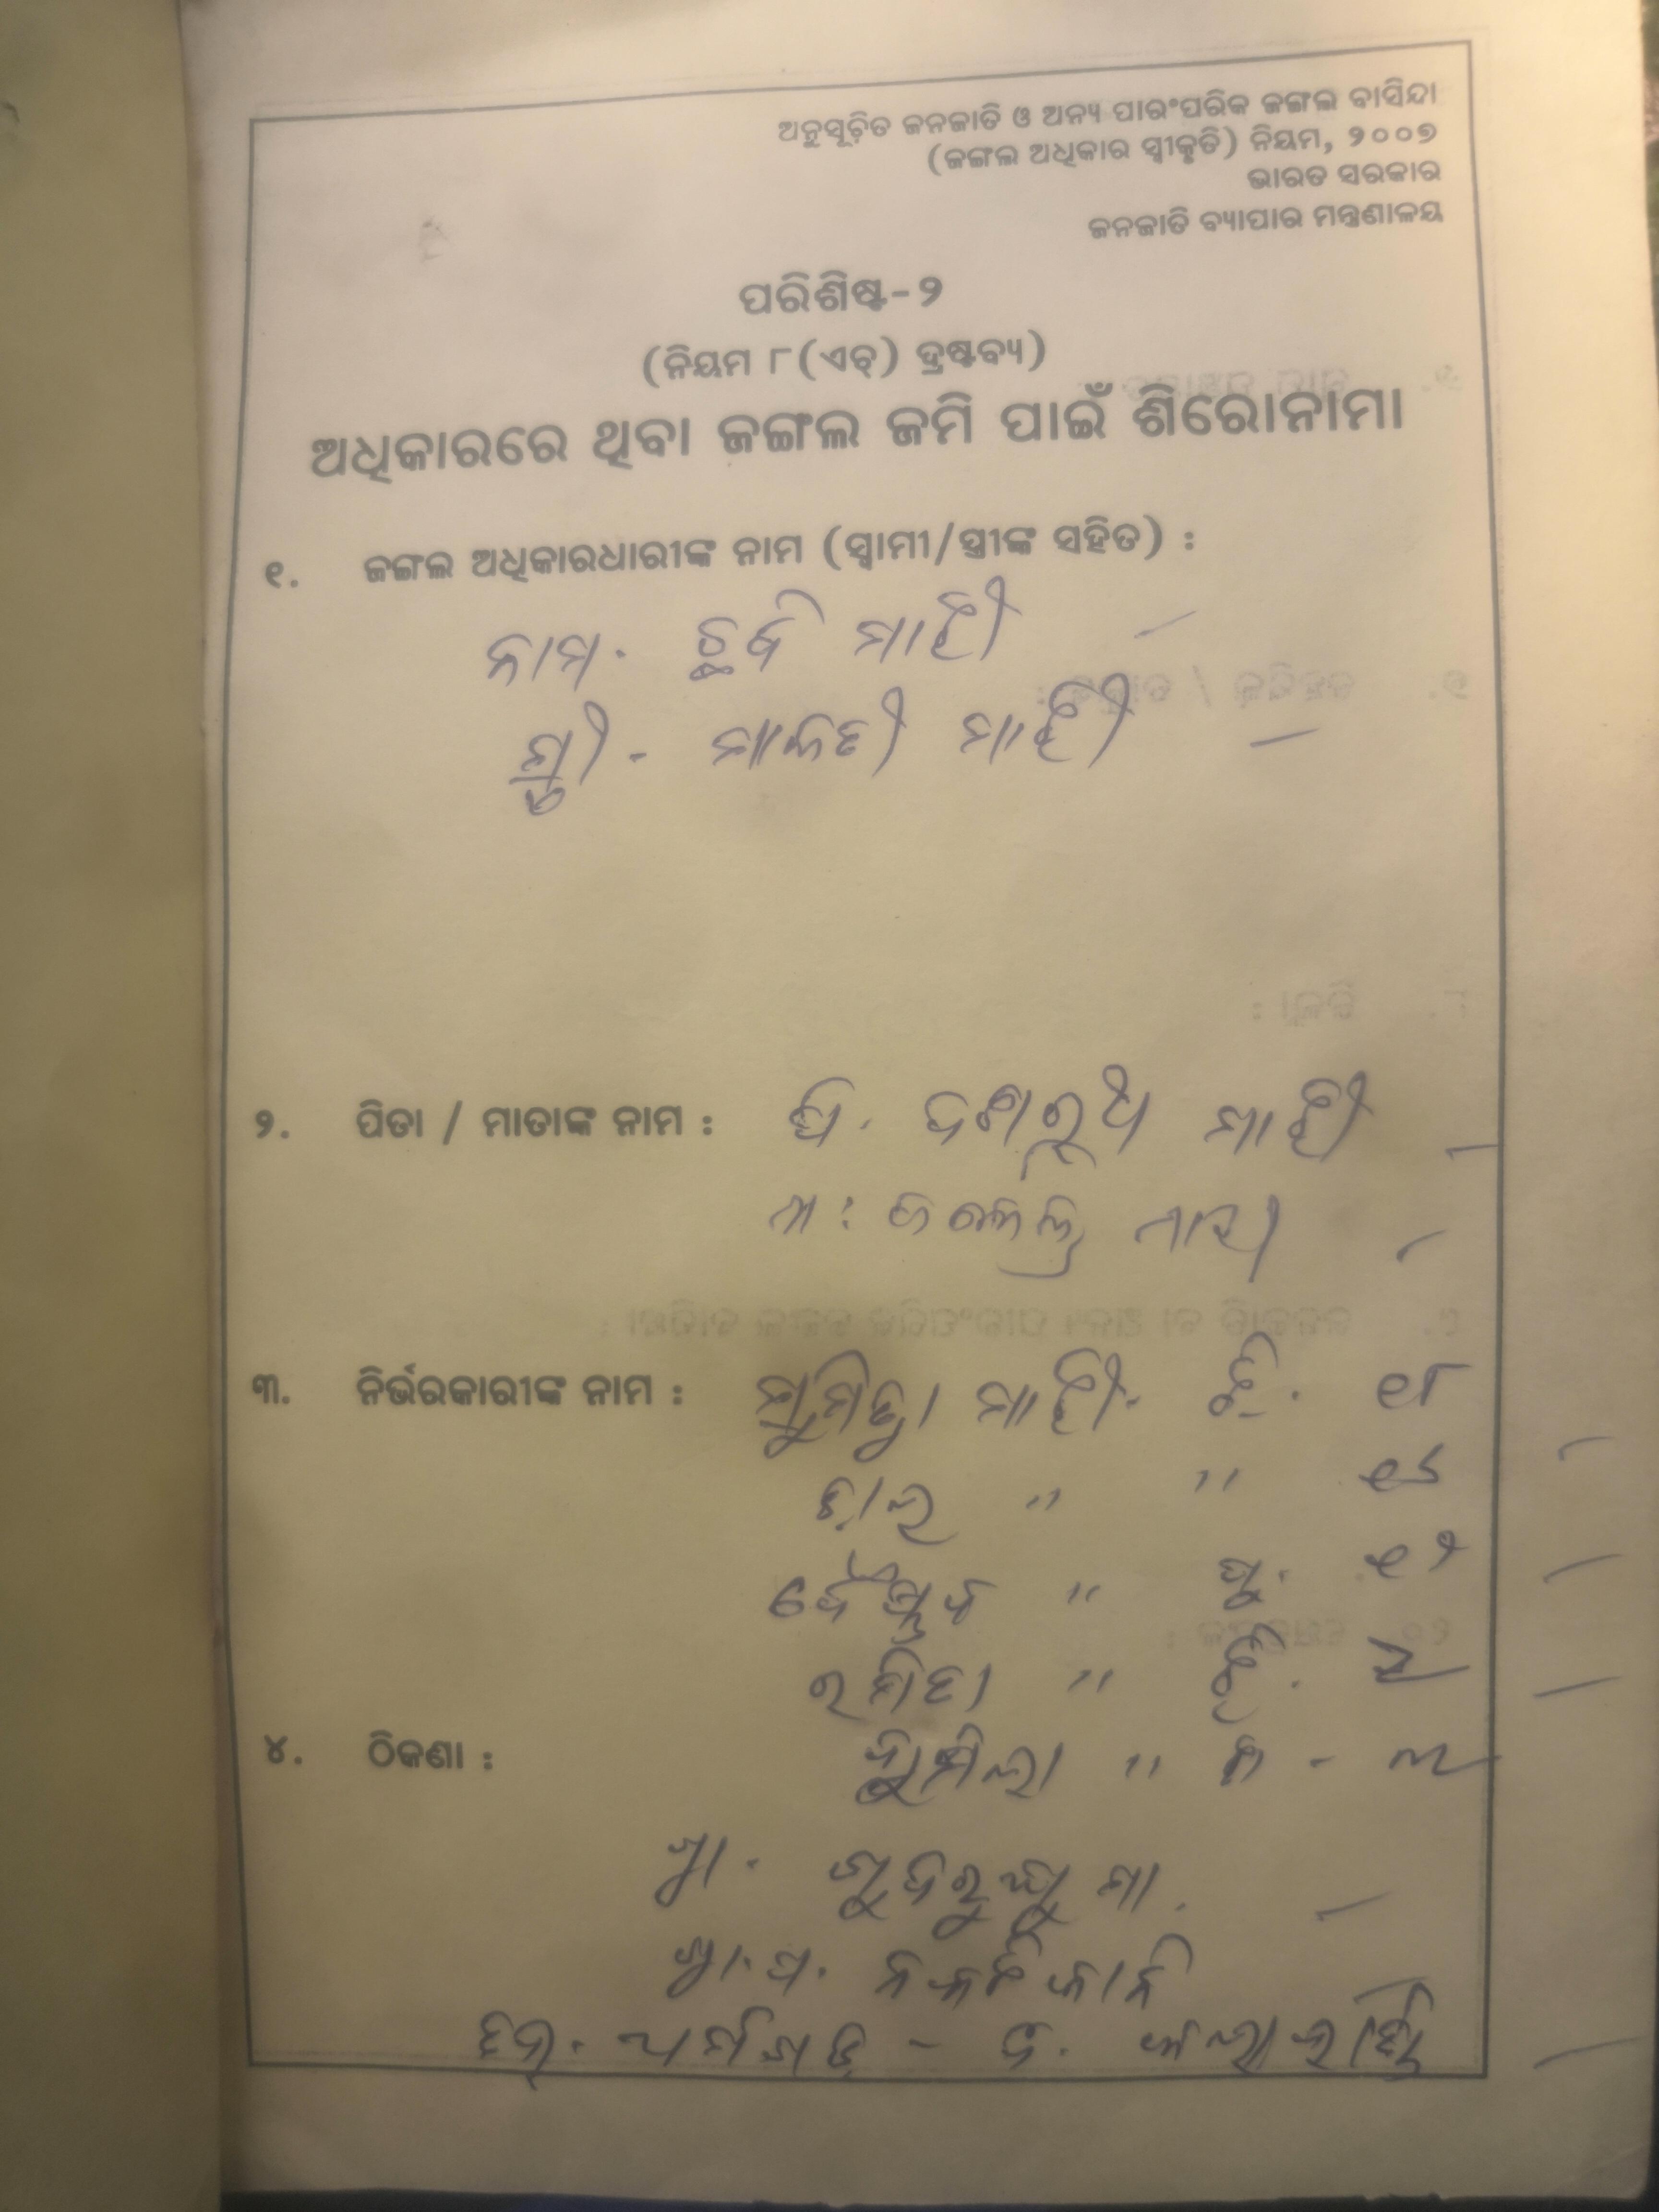 ଅନୁସୂଚିତ ଜନଜାତି ଓ ଅନ୍ୟ ପାରଂପରିକ ଜଙ୍ଗଲ ବାସିନ୍ଦା
(ଜଙ୍ଗଲ ଅଧିକାର ସ୍ୱୀକୃତି) ନିୟମ, ୨୦୦୭
ଭାରତ ସରକାର
ଜନଜାତି ବ୍ୟାପାର ମନ୍ତ୍ରଣାଳୟ
ପରିଶିଷ୍ଟ-୨
(ନିୟମ ୮(ଏଚ୍) ଦ୍ରଷ୍ଟବ୍ୟ)
ଅଧିକାରରେ ଥିବା ଜଙ୍ଗଲ ଜମି ପାଇଁ ଶିରୋନାମା
୧. ଜଙ୍ଗଲ ଅଧିକାରଧାରୀଙ୍କ ନାମ (ସ୍ୱାମୀ/ସ୍ତ୍ରୀଙ୍କ ସହିତ) :
ନାମ. ଛବି ମାଝୀ
ସ୍ତ୍ରୀ - ମାଳତୀ ମାଝୀ
୨. ପିତା / ମାତାଙ୍କ ନାମ : ପି. ଦଶରଥ ମାଝୀ
ମା : ମାଝୀ
୩. ନିର୍ଭରକାରୀଙ୍କ ନାମ : ସୁମିତ୍ରା ମାଝୀ - ଝି. ୧୮
" " ୧୫
ବୈଷ୍ଣବ " ପୁ. ୧୨
ରମିତା " ଝି.
୪. ଠିକଣା : ଝି -
ଗ୍ରା. ଗୁଦରୁଘୁମା.
ଗ୍ରା.ପ.
ଧର୍ମଗଡ଼ - ଜି. କଳାହାଣ୍ଡି